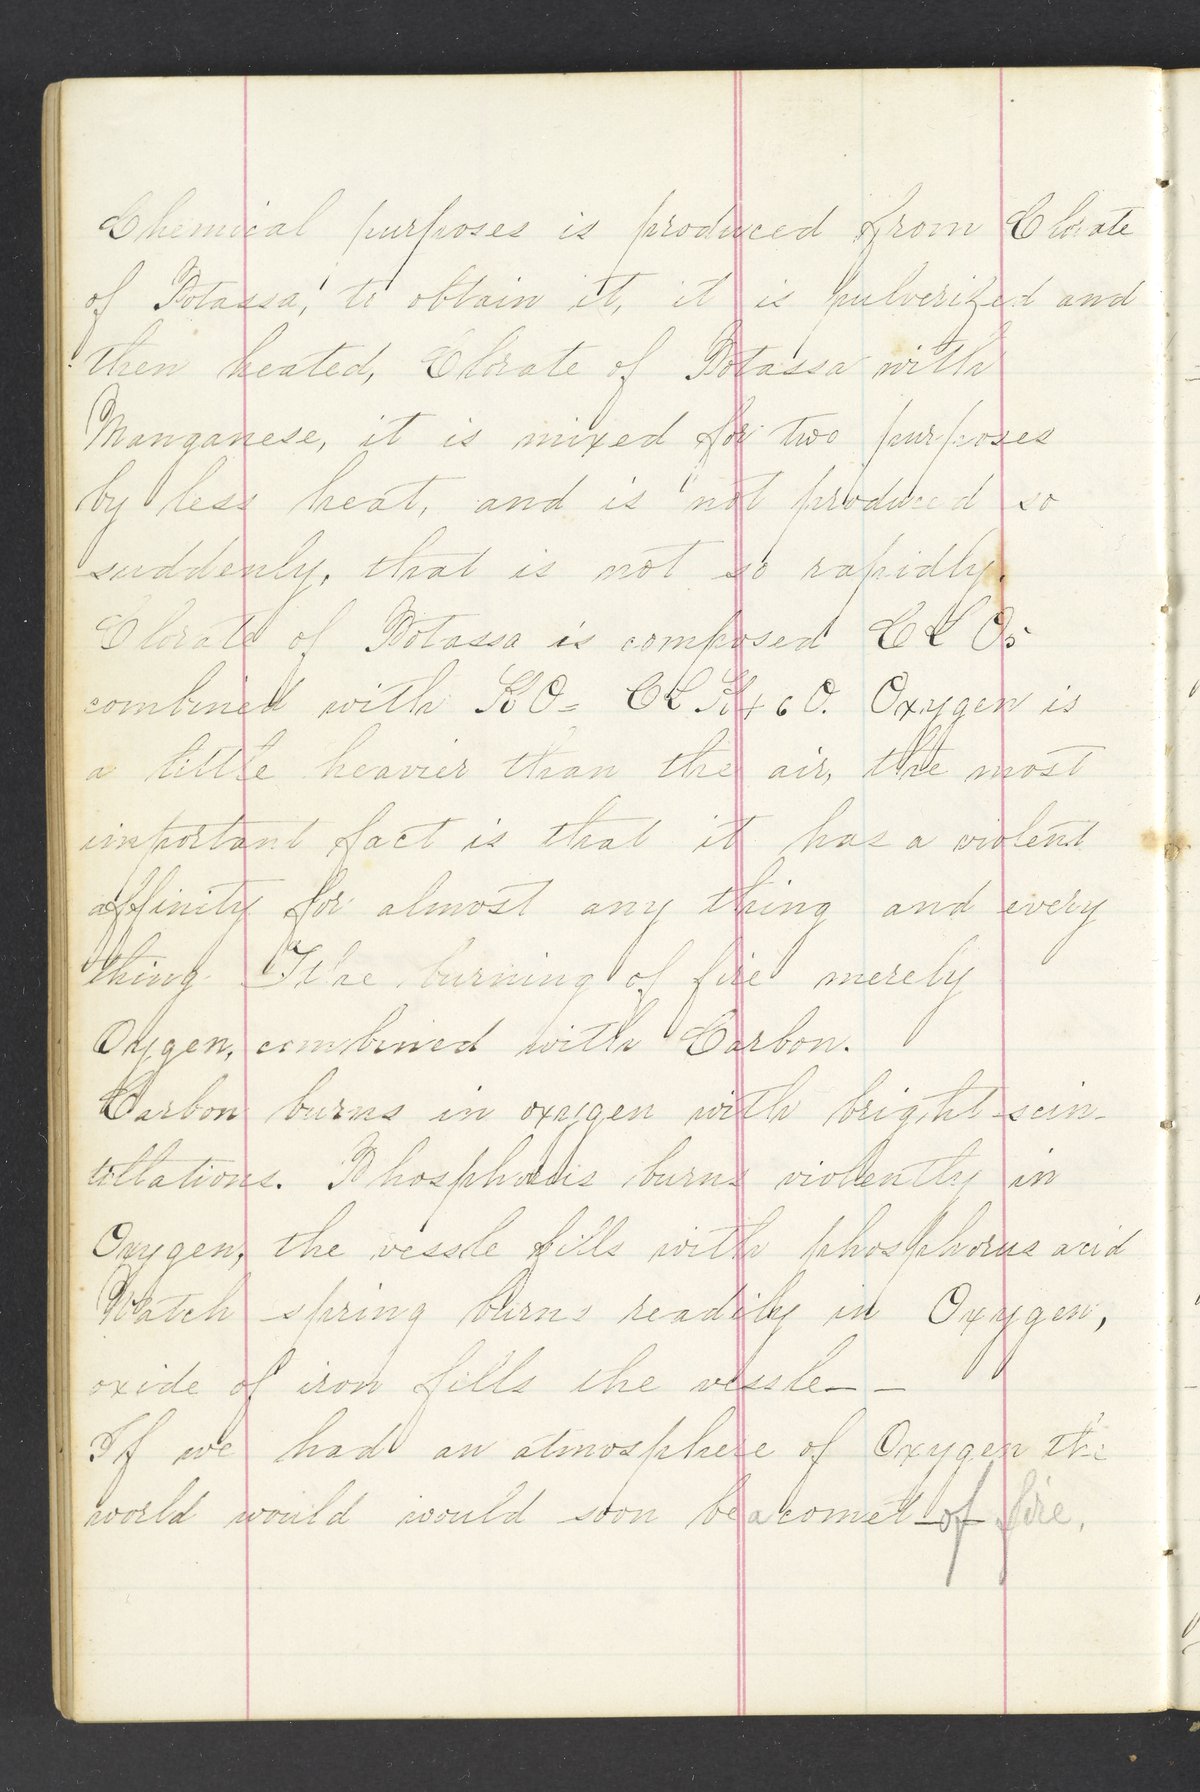 Chemical purposes is produced from Clorate
of Potassa, to obtain it, it is pulverized and
then heated, Clorate of Potassa with
Manganese, it is mixed for two purposes
by less heat, and is not produced so
suddenly, that is not so rapidly.
Clorate of Potassa is composed Cl O5
combined with KO = Cl K + 6 O. Oxygen is
a little heavier than the air, the most
important fact is that it has a violent
affinity for almost any thing and every
thing The burning of fire merely
Oxygen, combined with Carbon.
Carbon burns in oxygen with bright scin-
tillations. Phosphorus burns violently in
Oxygen, the vessle fills with phosphorus acid
Watch spring burns readily in Oxygen,
oxide of iron fills the vessle — —
If we had an atmosphere of Oxygen the
world would would soon be a comet of fire.